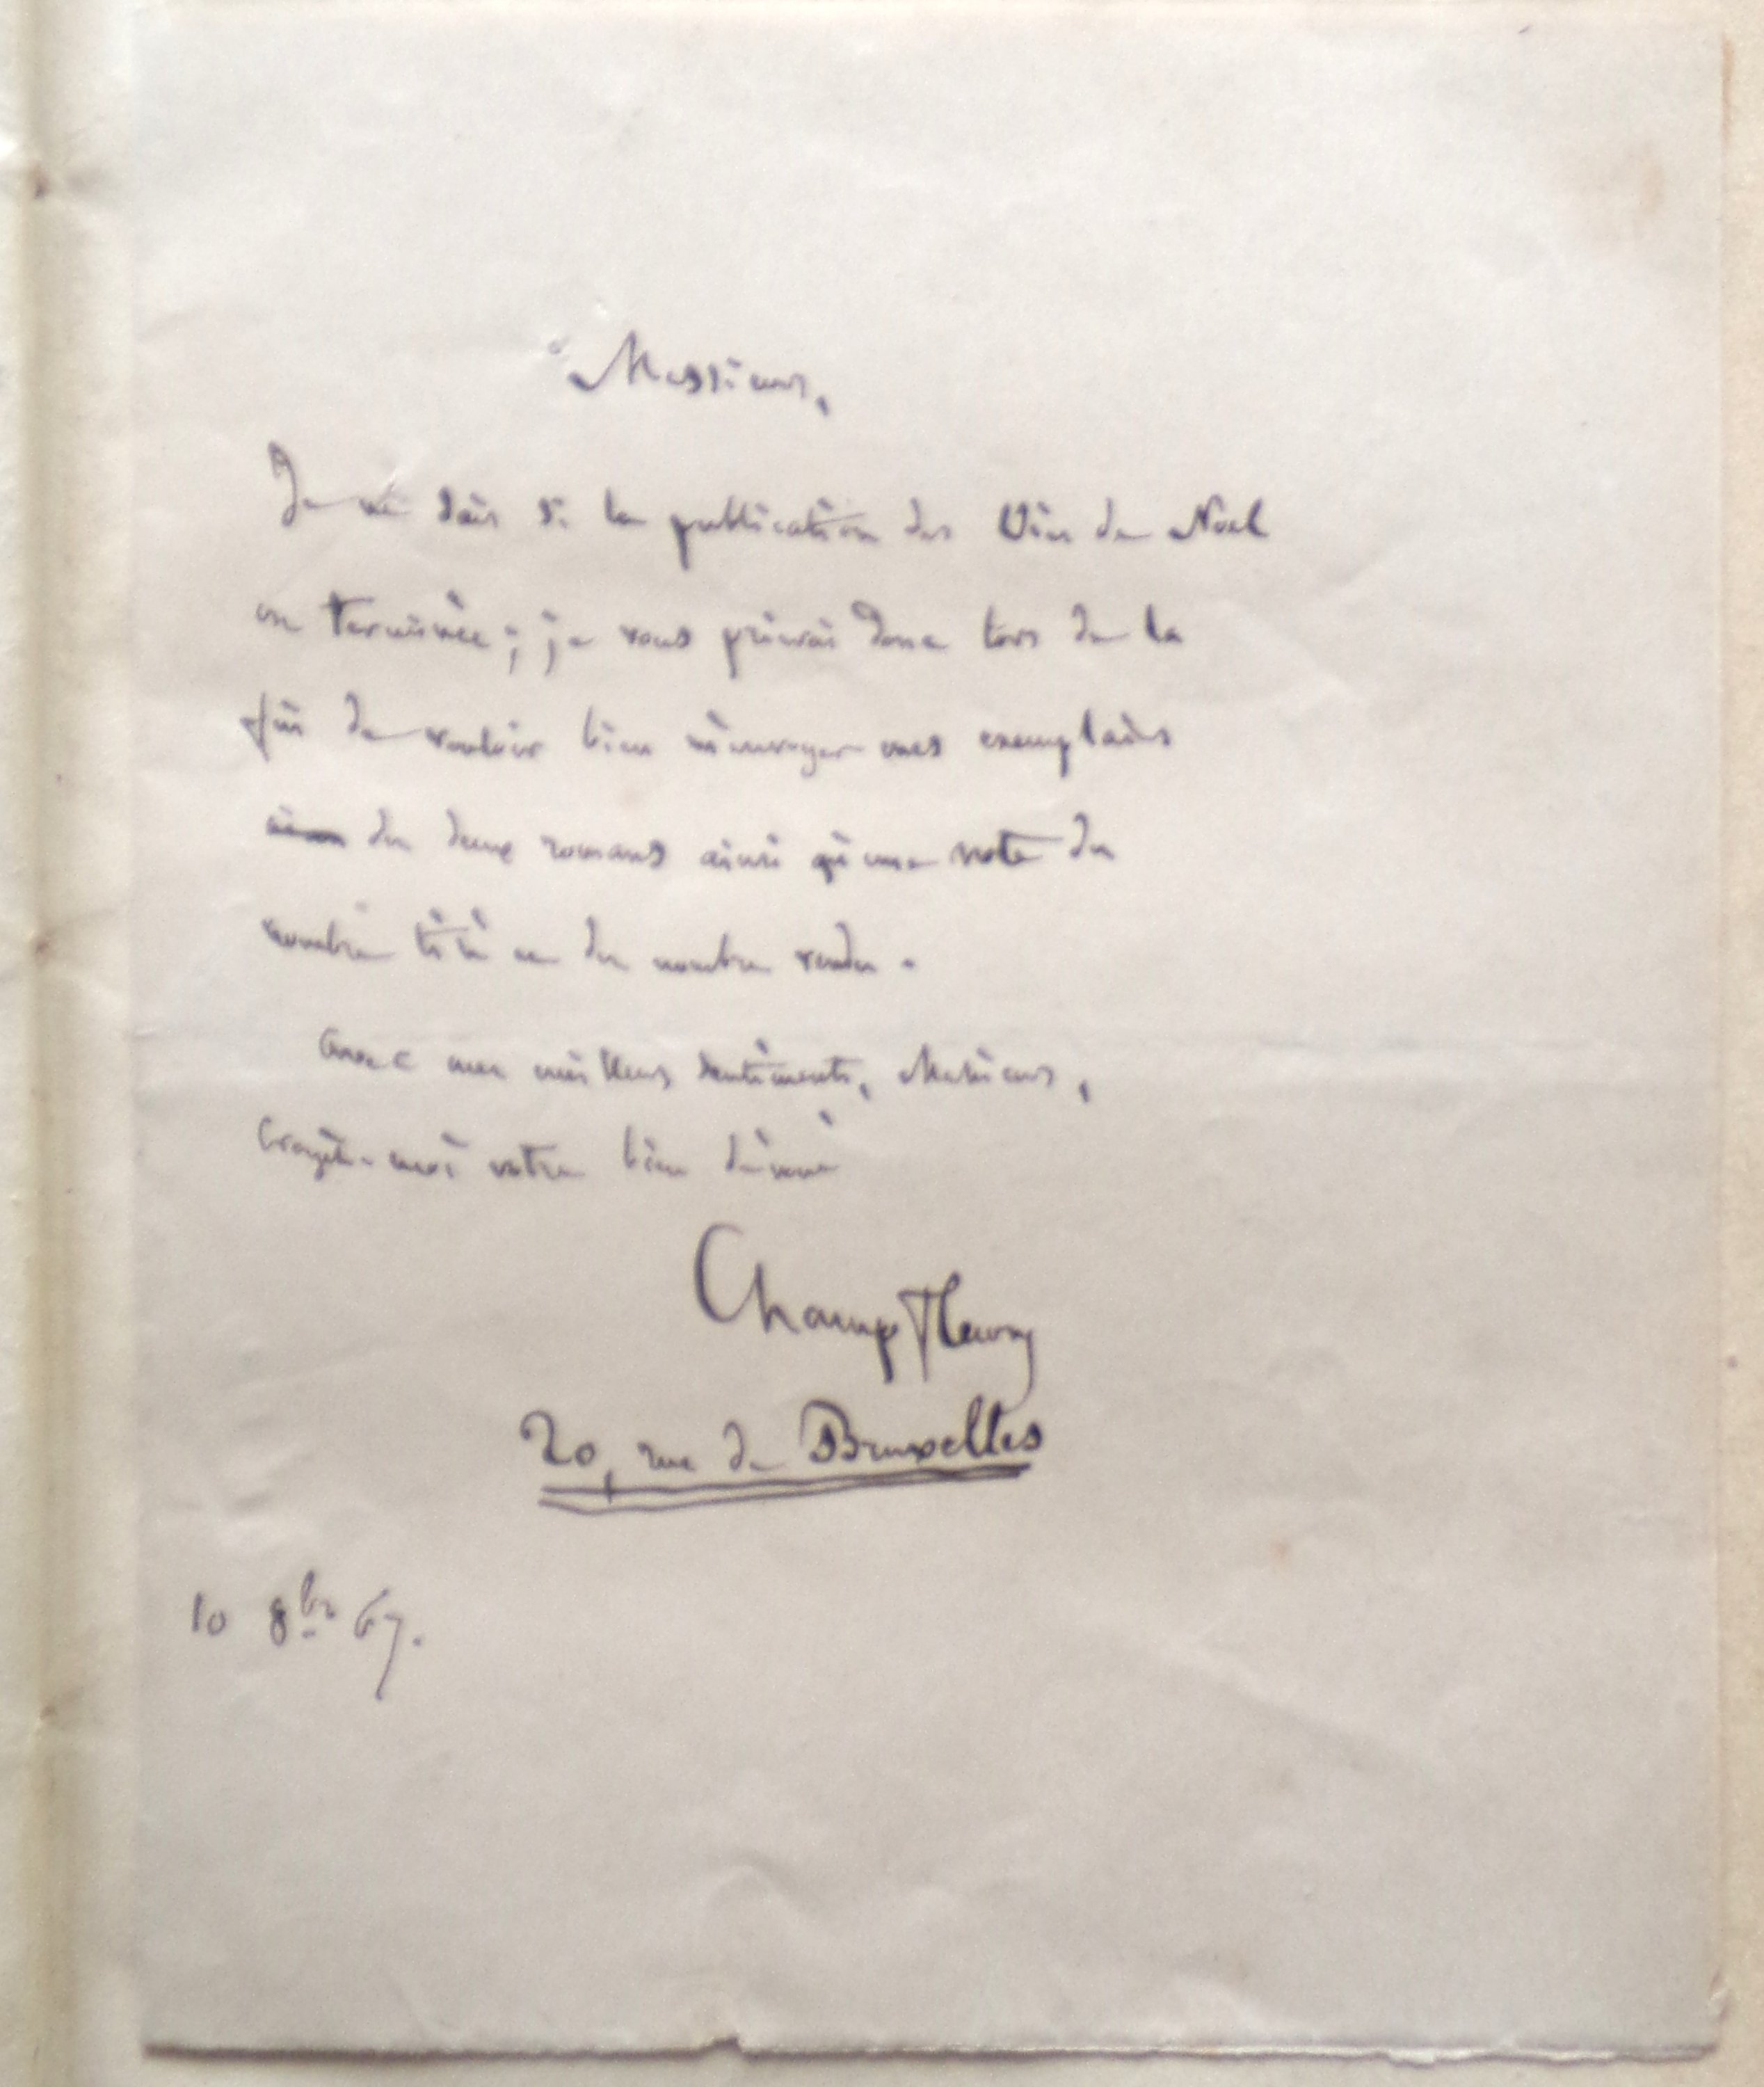 Monsieur,
Je ne sais si la publication des Oies de Noël
est terminée ; je vous prierai donc lors de la
fin de vouloir bien m'envoyer mes exemplaires
des deux romans ainsi qu'une note du
nombre tiré et du nombre vendu.
Avec mes meilleurs sentiments, Monsieur,
Croyez-moi votre bien dévoué
Champfleury
20, rue de Bruxelles
10 8bre 67.